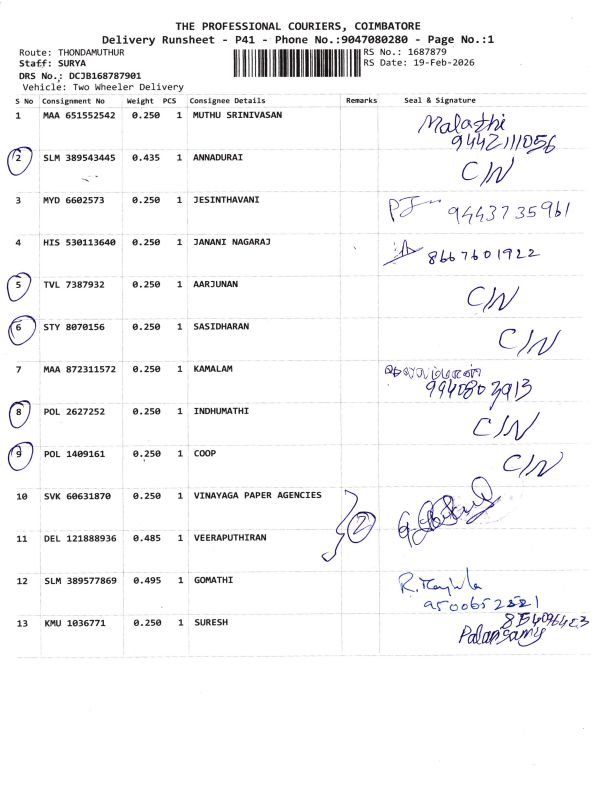 THE PROFESSIONAL COURIERS, COIMBATORE
Delivery Runsheet - P41 - Phone No.:9047080280 - Page No.:1
Route: THONDAMUTHUR
RS No.: 1687879
Staff: SURYA
RS Date: 19-Feb-2026
DRS No.: DCJB168787901
Vehicle: Two Wheeler Delivery
S No Consignment No Weight PCS Consignee Details Remarks Seal & Signature
1 MAA 651552542 0.250 1 MUTHU SRINIVASAN Malathi
9442111056
2 SLM 389543445 0.435 1 ANNADURAI C/N
3 MYD 6602573 0.250 1 JESINTHAVANI 9443735961
4 HIS 530113640 0.250 1 JANANI NAGARAJ 8667601922
5 TVL 7387932 0.250 1 AARJUNAN C/N
6 STY 8070156 0.250 1 SASIDHARAN C/N
7 MAA 872311572 0.250 1 KAMALAM
8 POL 2627252 0.250 1 INDHUMATHI C/N
9 POL 1409161 0.250 1 COOP C/N
10 SVK 60631870 0.250 1 VINAYAGA PAPER AGENCIES
2
11 DEL 121888936 0.485 1 VEERAPUTHIRAN
12 SLM 389577869 0.495 1 GOMATHI R.
13 KMU 1036771 0.250 1 SURESH
Palansamy